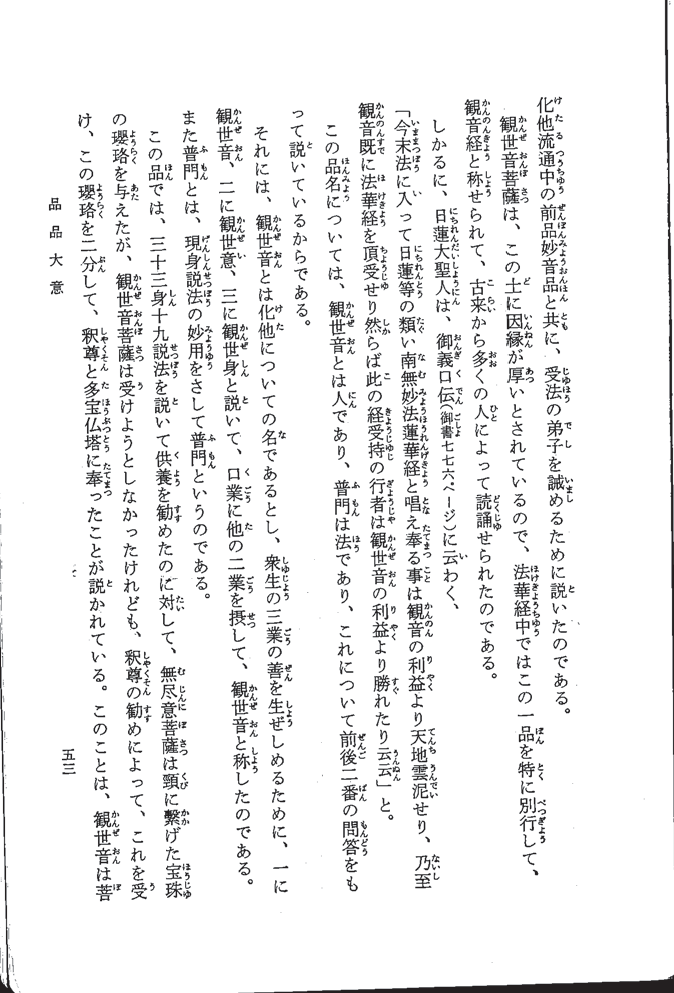 化他流通中の前品妙音品と共に、受法の弟子を誡めるために説いたのである。
観世音菩薩は、この土に因縁が厚いとされているので、法華経中ではこの一品を特に別行して、
観音経と称せられて、古来から多くの人によって読誦せられたのである。
しかるに、日蓮大聖人は、御義口伝(御書七七六ページ)に云わく、
「今末法に入って日蓮等の類い南無妙法蓮華経と唱え奉る事は観音の利益より天地雲泥せり、乃至
観音既に法華経を頂受せり然らば此の経受持の行者は観世音の利益より勝れたり云云」と。
この品名については、観世音とは人であり、普門は法であり、これについて前後二番の問答をも
って説いているからである。
それには、観世音とは化他についての名であるとし、衆生の三業の善を生ぜしめるために、一に
観世音、二に観世意、三に観世身と説いて、口業に他の二業を摂して、観世音と称したのである。
また普門とは、現身説法の妙用をさして普門というのである。
この品では、三十三身十九説法を説いて供養を勧めたのに対して、無尽意菩薩は頸に繋げた宝珠
の瓔珞を与えたが、観世音菩薩は受けようとしなかったけれども、釈尊の勧めによって、これを受
け、この瓔珞を二分して、釈尊と多宝仏塔に奉ったことが説かれている。このことは、観世音は菩
品品大意
五三